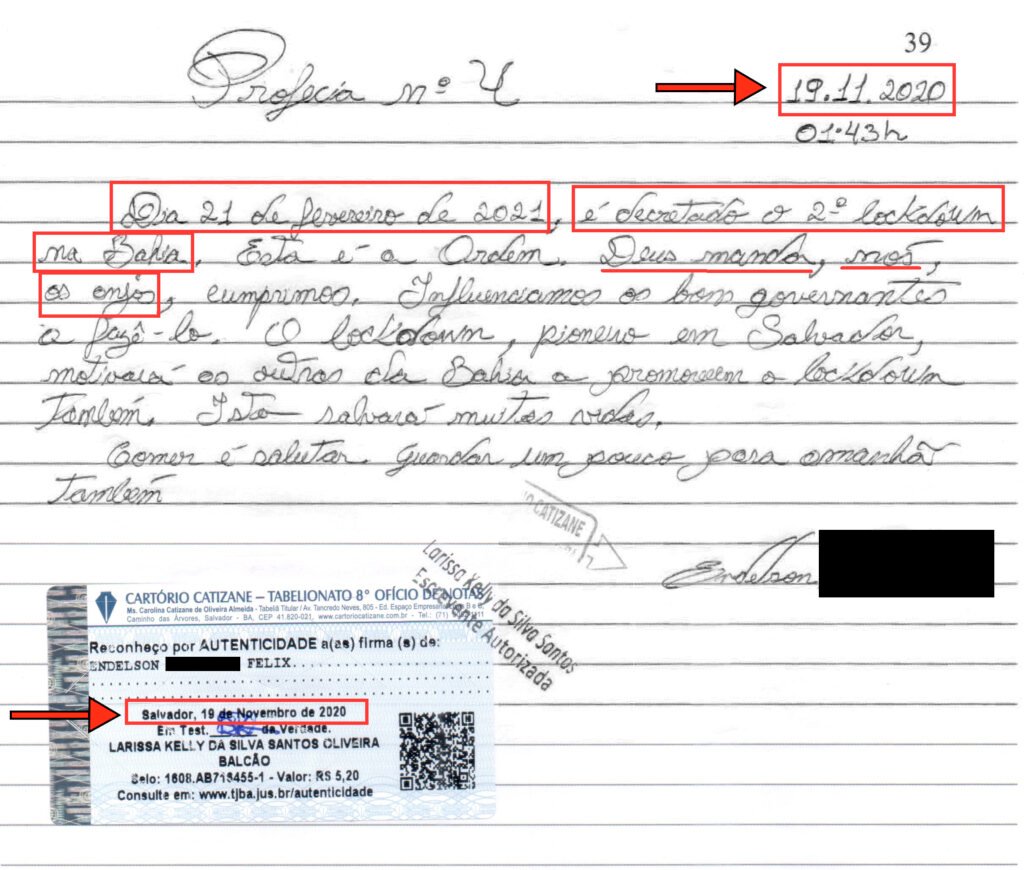 39
Profecia nº 4
19.11.2020
01:43h
Dia 21 de fevereiro de 2021, é decretado o 2º lockdown
na Bahia. Esta é a Ordem. Deus manda, nós,
os anjos, cumprimos. Influenciamos os bons governantes
a fazê-lo. O lockdown, pioneiro em Salvador,
motivará os outros da Bahia a promoverem o lockdown
também. Isto salvará muitas vidas.
Comer é salutar. Guardar um pouco para amanhã
também
IO CATIZANE
Endelson
Larissa Kelly da Silva Santos
Escrevente Autorizada
CARTÓRIO CATIZANE – TABELIONATO 8° OFÍCIO DE NOTAS
Ms. Carolina Catizane de Oliveira Almeida - Tabeliã Titular / Av. Tancredo Neves, 805 - Ed. Espaço Empresarial
Caminho das Árvores, Salvador - BA, CEP 41.820-021, www.cartoriocatizane.com.br - Tel.: (71)
Reconheço por AUTENTICIDADE a(as) firma (s) de:
ENDELSON FELIX
Salvador, 19 de Novembro de 2020
Em Test. da Verdade.
LARISSA KELLY DA SILVA SANTOS OLIVEIRA
BALCÃO
Selo: 1608.AB718455-1 - Valor: R$ 5,20
Consulte em: www.tjba.jus.br/autenticidade